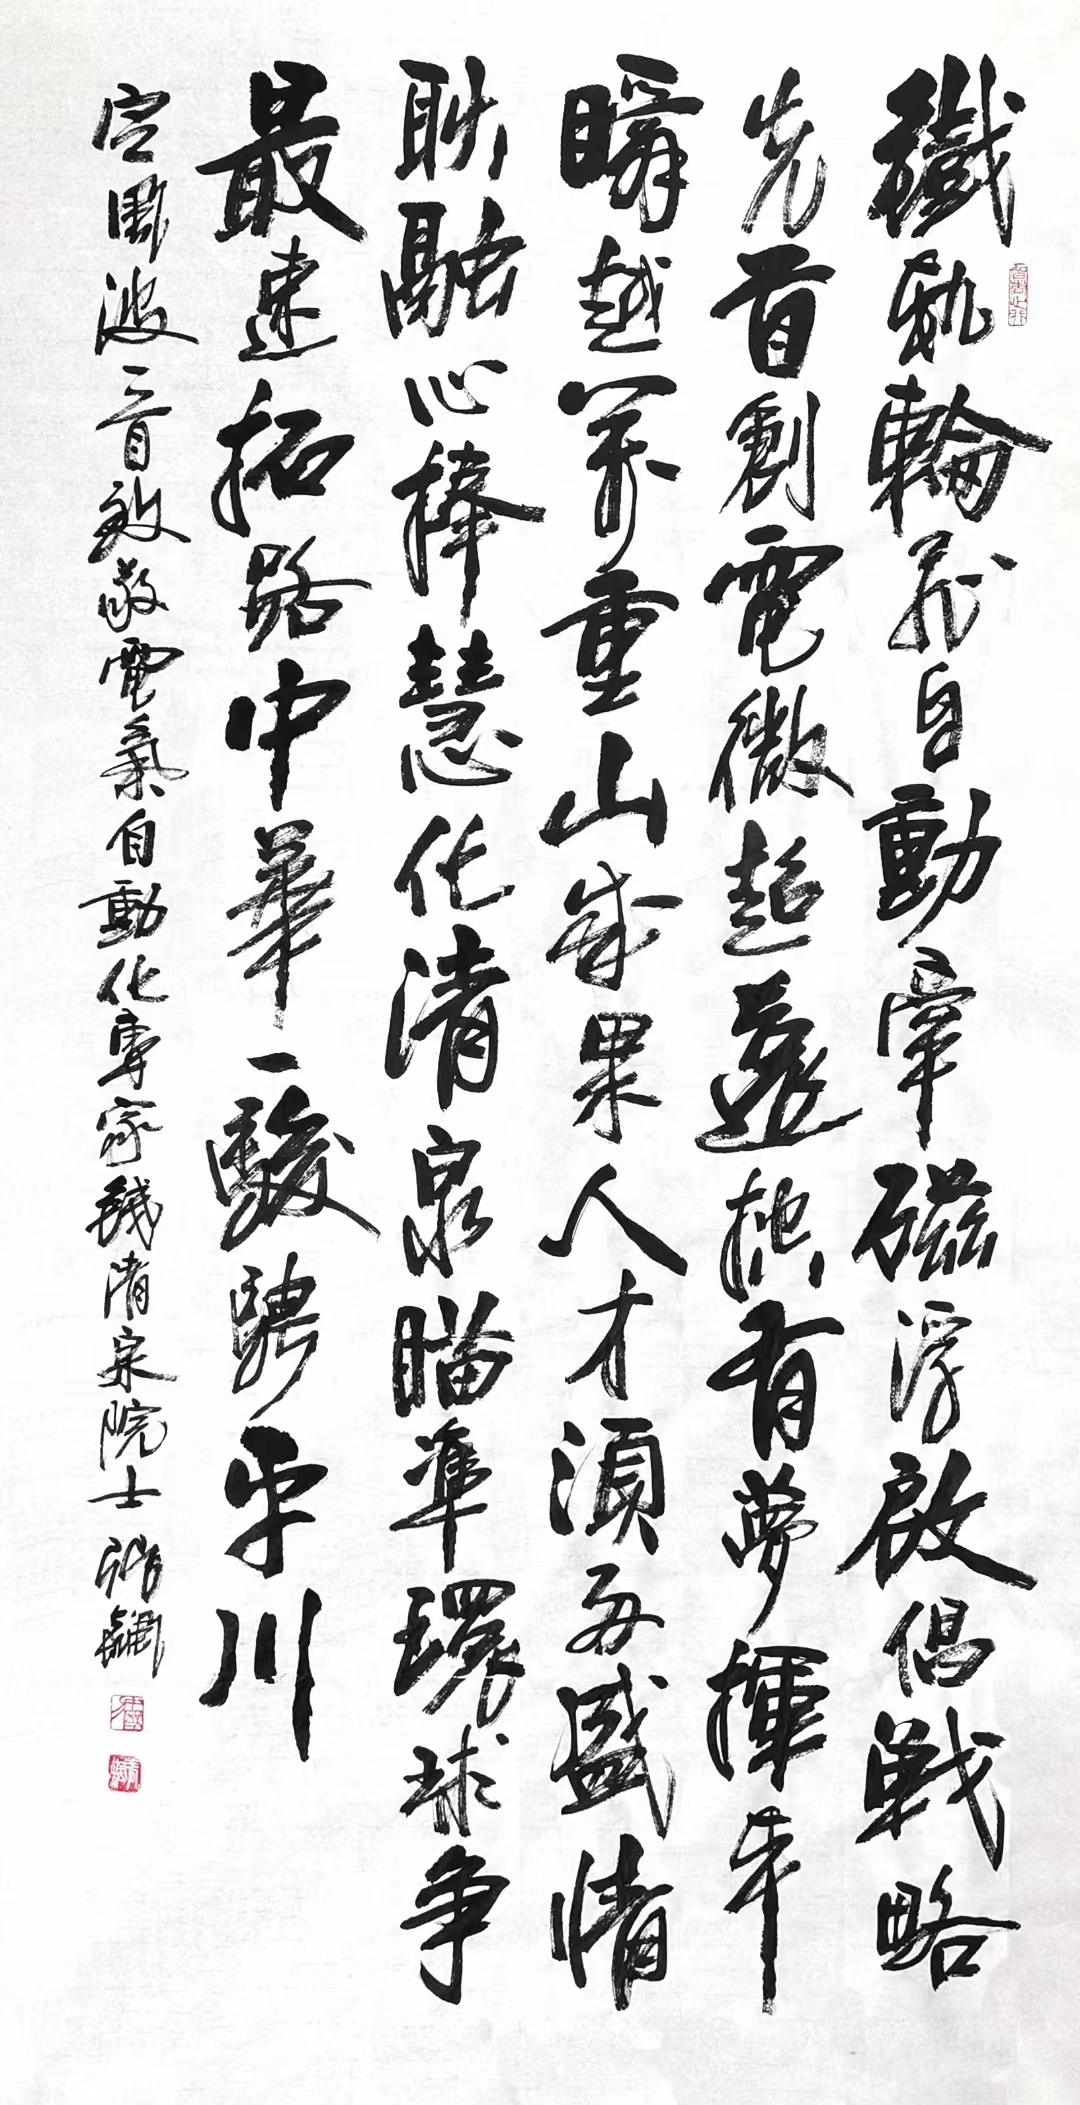 鐵軌輪飛自動牽磁浮啟倡戰略
先首創電微超遠控有夢揮
瞬越萬重山成果人才須兩盛情
融心捧慧化清泉瞄準環球爭
最速拓路中華一駿騁平川
定風波一首致敬電氣自動化專家錢清泉院士